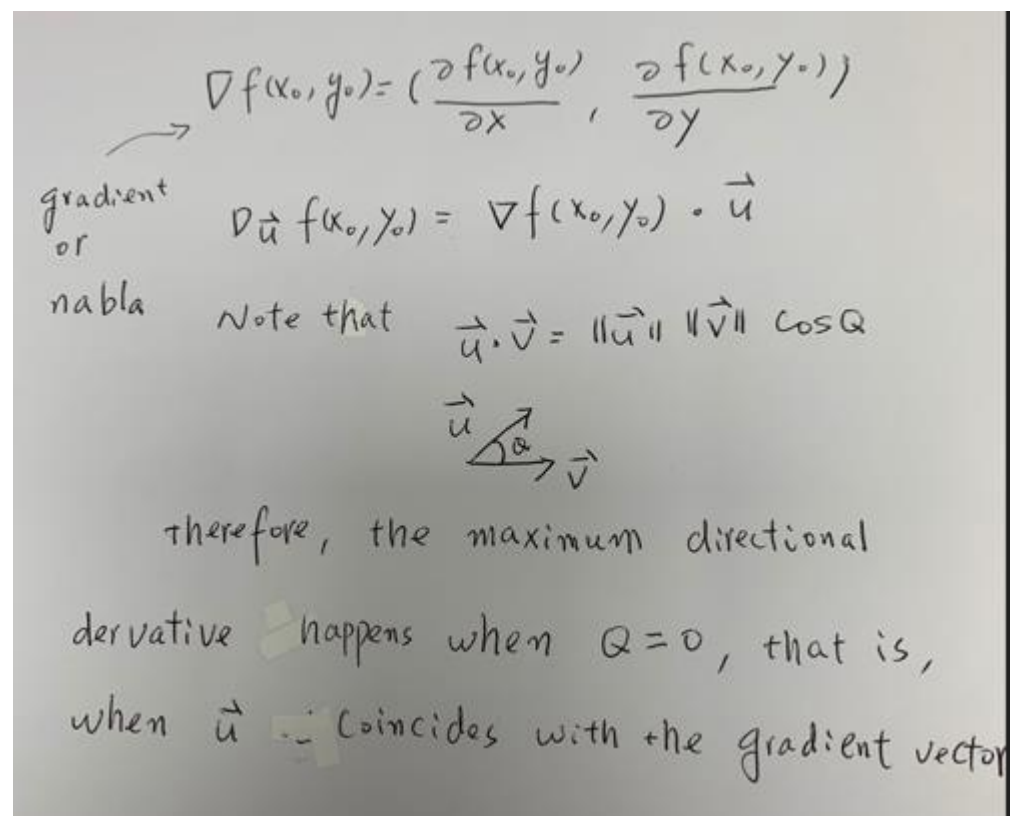 ∇f(x₀, y₀) = (∂f(x₀, y₀)/∂x , ∂f(x₀, y₀)/∂y)
gradient
or
nabla
D_u⃗ f(x₀, y₀) = ∇f(x₀, y₀) · u⃗
Note that u⃗ · v⃗ = ‖u⃗‖ ‖v⃗‖ cos Q
u⃗
Q
v⃗
therefore, the maximum directional
dervative happens when Q = 0, that is,
when u⃗ coincides with the gradient vector